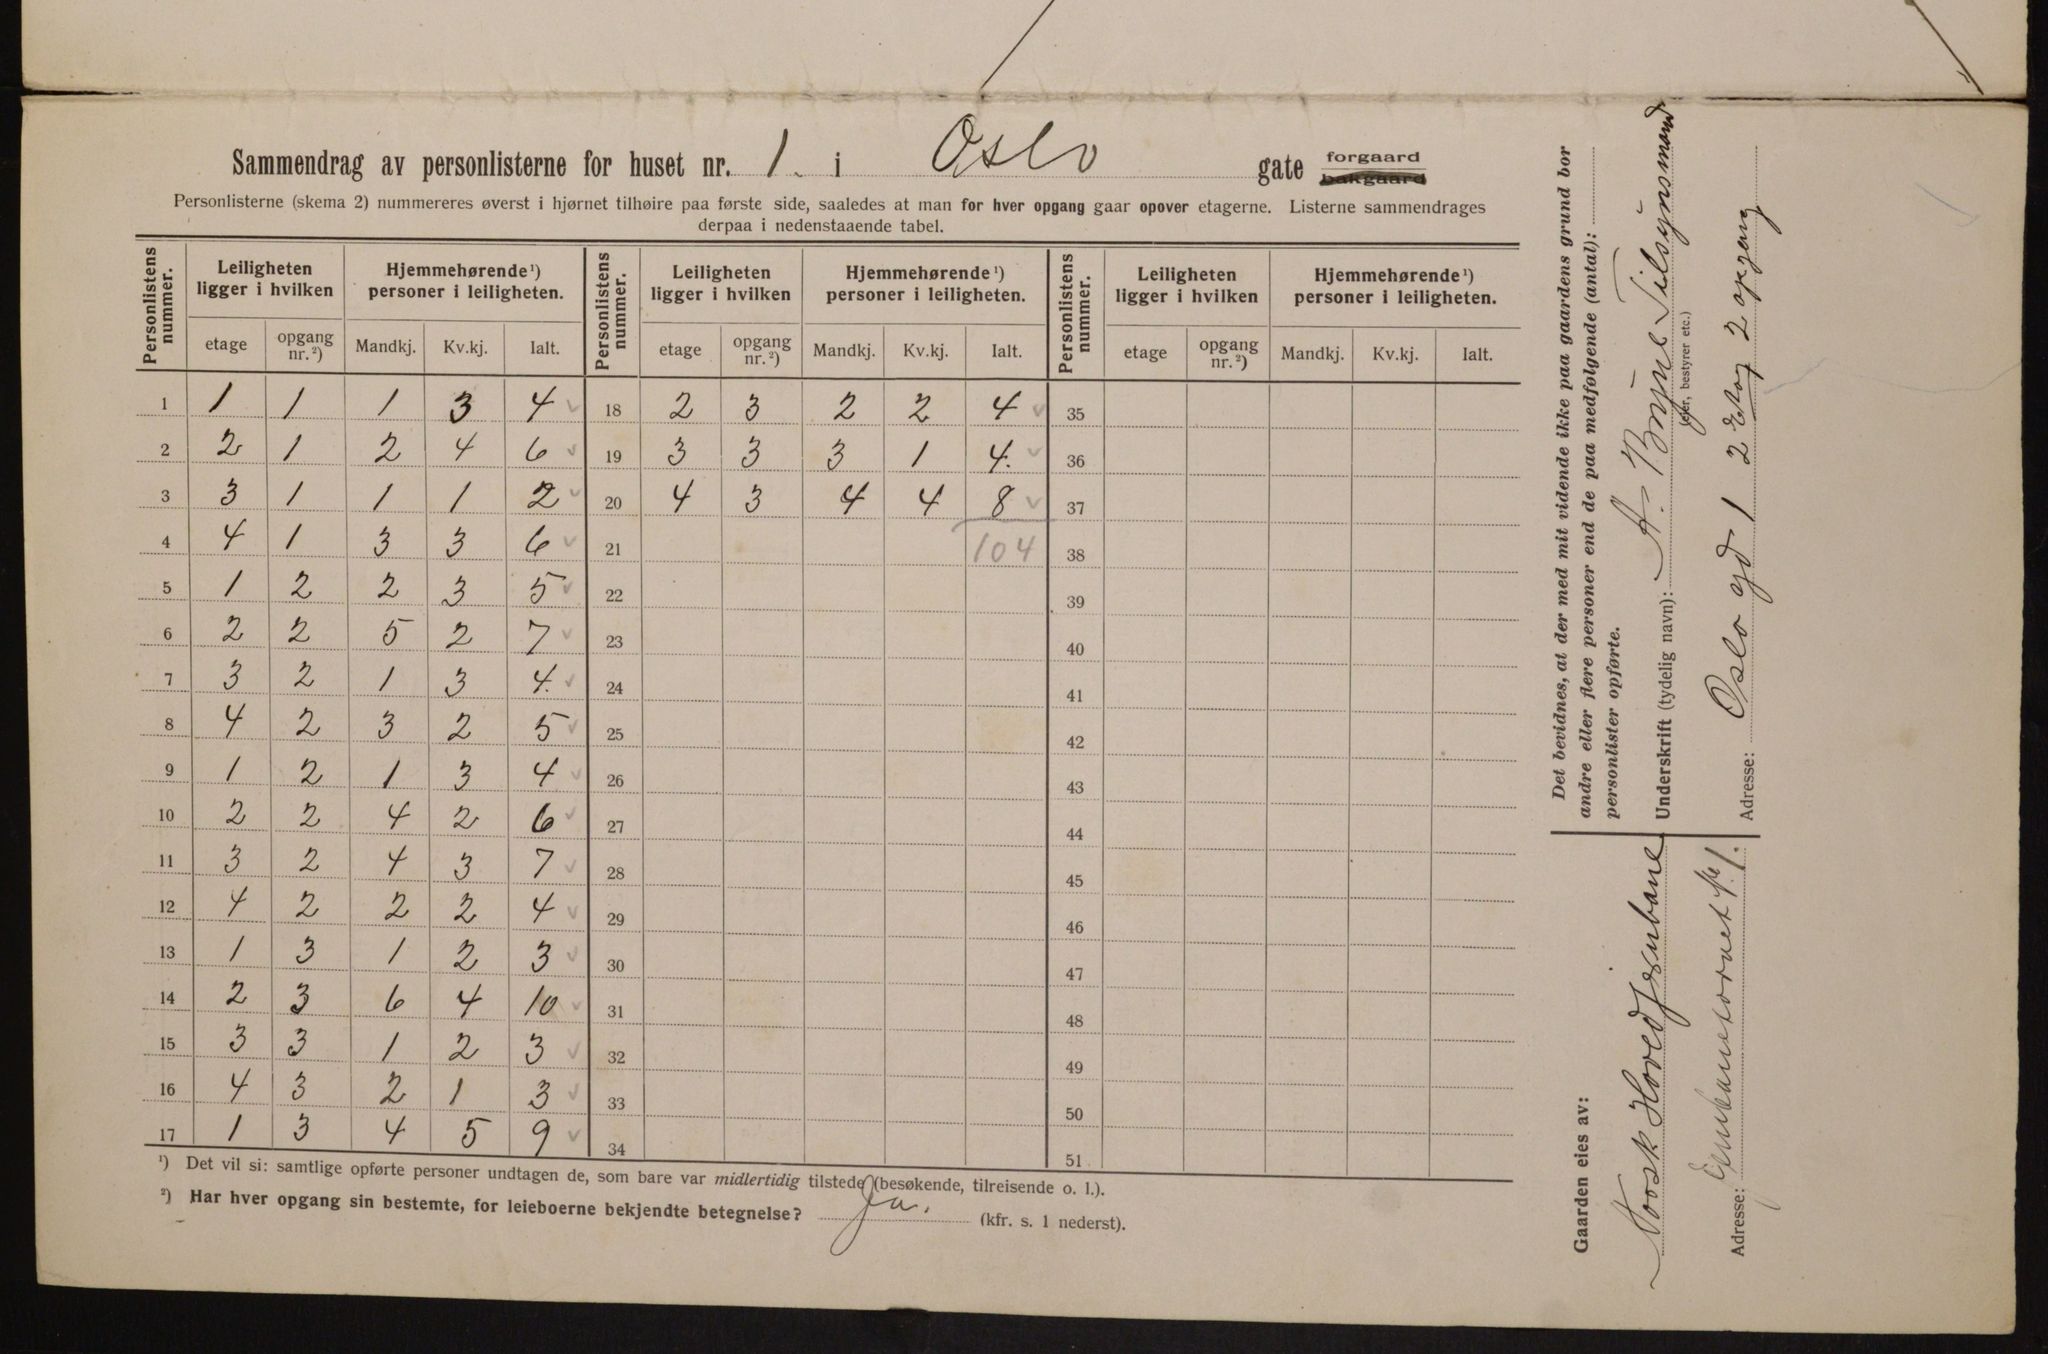 Sammendrag av personlisterne for huset nr. 1. i Oslo gate forgaard bakgaard
Personlisterne (skema 2) nummereres øverst i hjørnet tilhøire paa første side, saaledes at man for hver opgang gaar opover etagerne. Listerne sammendrages
derpaa i nedenstaaende tabel.
Personlistens nummer. Leiligheten ligger i hvilken Hjemmehørende ¹) personer i leiligheten. Personlistens nummer. Leiligheten ligger i hvilken Hjemmehørende ¹) personer i leiligheten. Personlistens nummer. Leiligheten ligger i hvilken Hjemmehørende ¹) personer i leiligheten.
etage opgang nr. ²) Mandkj. Kv.kj. Ialt. etage opgang nr. ²) Mandkj. Kv.kj. Ialt. etage opgang nr. ²) Mandkj. Kv.kj. Ialt.
1 1 1 1 3 4 18 2 3 2 2 4 35
2 2 1 2 4 6 19 3 3 3 1 4. 36
3 3 1 1 1 2 20 4 3 4 4 8 37
4 4 1 3 3 6 21 104 38
5 1 2 2 3 5 22 39
6 2 2 5 2 7 23 40
7 3 2 1 3 4. 24 41
8 4 2 3 2 5 25 42
9 1 2 1 3 4 26 43
10 2 2 4 2 6 27 44
11 3 2 4 3 7 28 45
12 4 2 2 2 4 29 46
13 1 3 1 2 3 30 47
14 2 3 6 4 10 31 48
15 3 3 1 2 3 32 49
16 4 3 2 1 3 33 50
17 1 3 4 5 9 34 51
¹) Det vil si: samtlige opførte personer undtagen de, som bare var midlertidig tilstede (besøkende, tilreisende o. l.).
²) Har hver opgang sin bestemte, for leieboerne bekjendte betegnelse? Ja. (kfr. s. 1 nederst).
Det bevidnes, at der med mit vidende ikke paa gaardens grund bor
andre eller flere personer end de paa medfølgende (antal):
personlister opførte.
Underskrift (tydelig navn): A. Bryne Tilsynsmand
(eier, bestyrer etc.)
Adresse: Oslo gd 1 2 Etag 2 opgang
Gaarden eies av:
Norsk Hovedjernbane
Adresse: Jernbanetorvet №1.